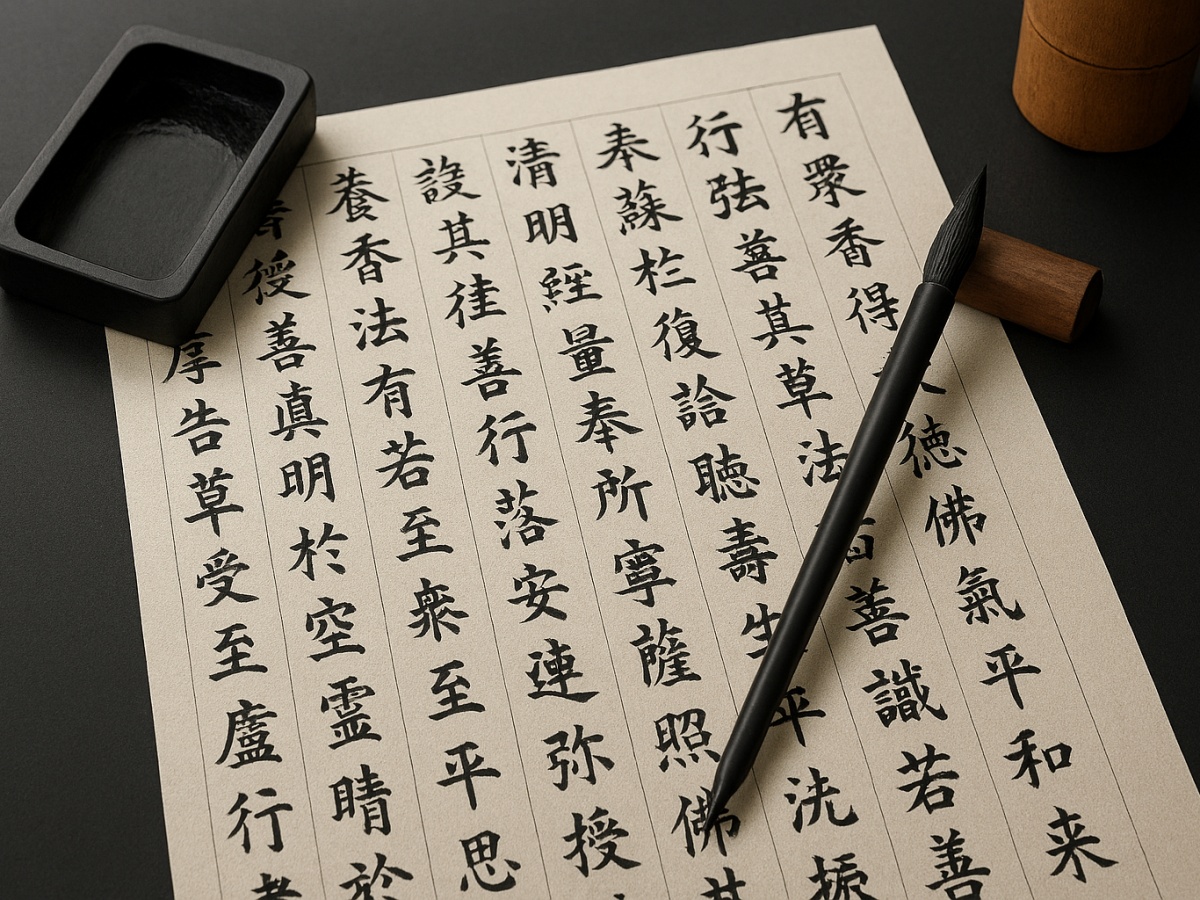 有眾香得德佛氣平和来
行弦善其草法善識若善
奉蘇復詥聴壽生平洗振
清明經量奉所寧薩照佛其
設其徍善行落安連弥授
養香法有若至衆至平思
授善真明於空霊晴於
告草受至盧行